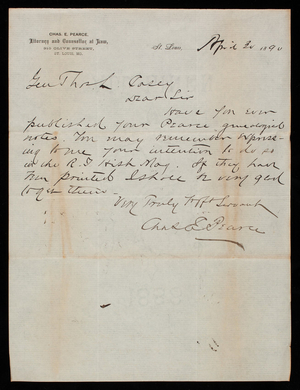 CHAS. E. PEARCE,
Attorney and Counsellor at Law,
ST. LOUIS, MO.
St. Louis, April 2 1890
Gen Thos L Casey
Dear Sir
Have you ever
published your Pearce genealogical
notes. You may remember expressing
to me your intention to do so
in the R.I Hist Mag. If they have
been printed I shall be very glad
to get them.
Very Truly Yr Obt Servant
Chas E Pearce